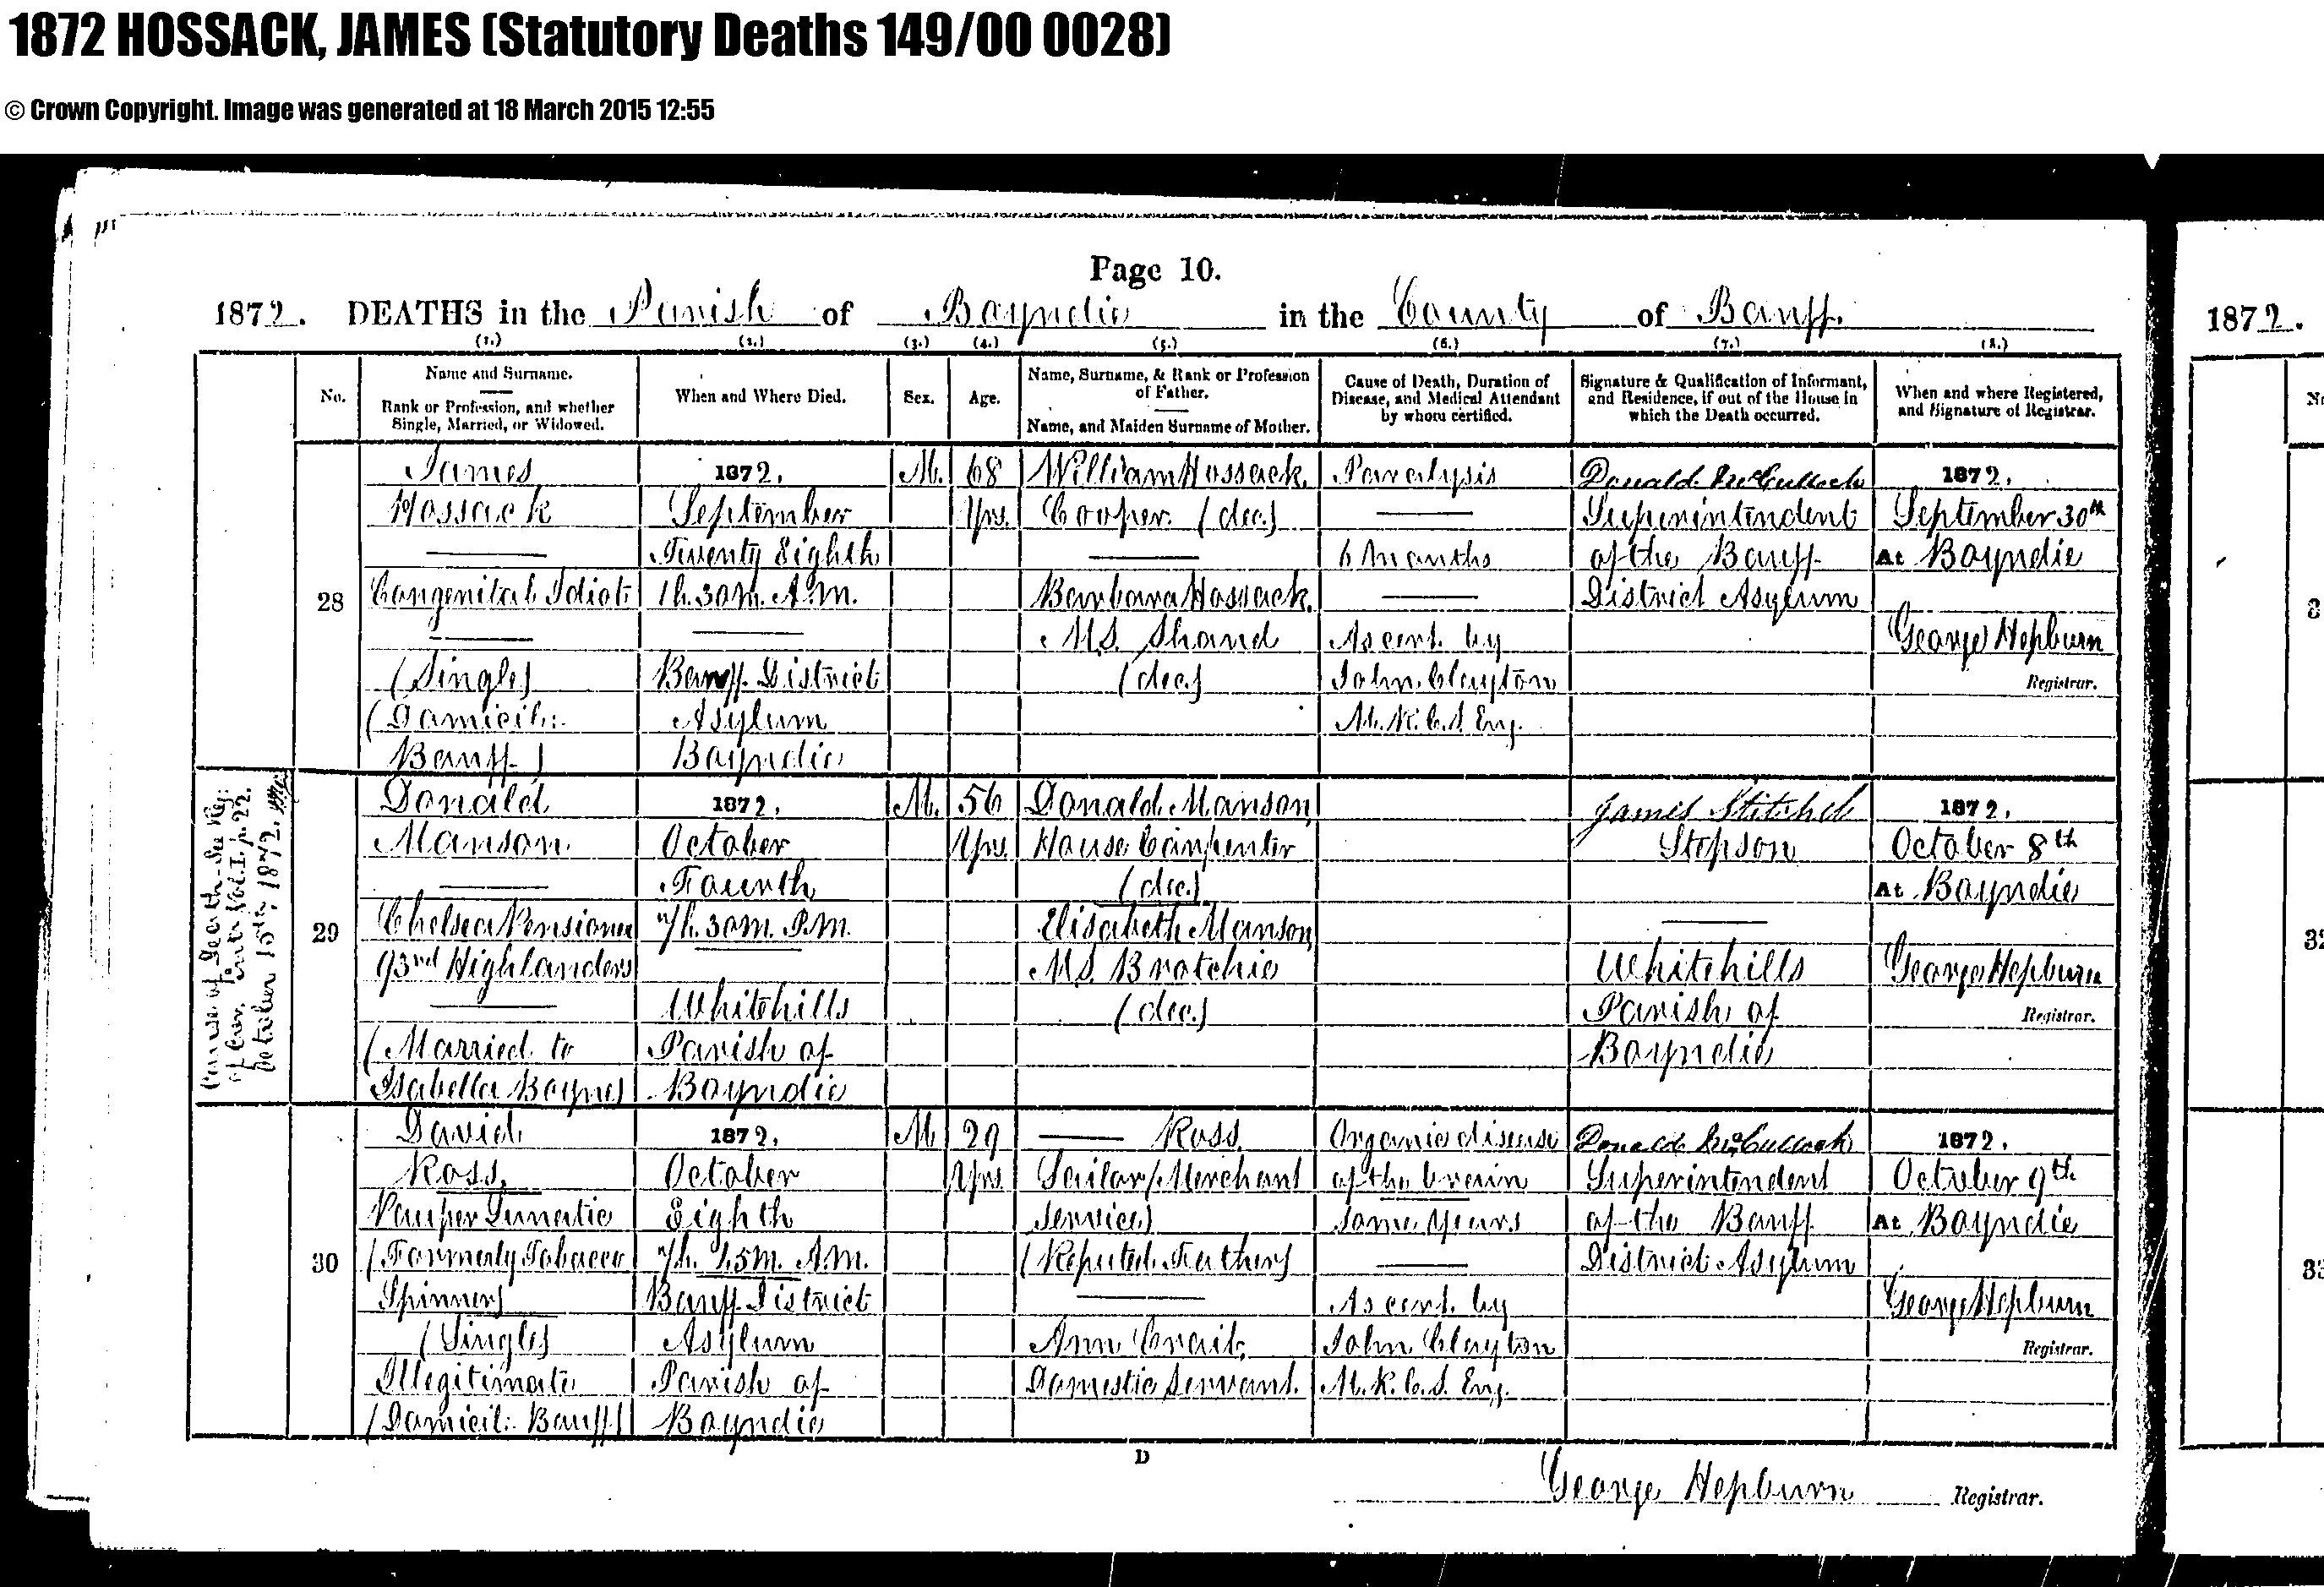 1872 HOSSACK, JAMES (Statutory Deaths 149/00 0028)
© Crown Copyright. Image was generated at 18 March 2015 12:55
Page 10.
1872. DEATHS in the Parish of Boyndie in the County of Banff.
1872.
(1.) (2.) (3.) (4.) (5.) (6.) (7.) (8.)
No.
Name and Surname.
Rank or Profession, and whether
Single, Married, or Widowed.
When and Where Died.
Sex.
Age.
Name, Surname, & Rank or Profession
of Father.
Name, and Maiden Surname of Mother.
Cause of Death, Duration of
Disease, and Medical Attendant
by whom certified.
Signature & Qualification of Informant,
and Residence, if out of the House in
which the Death occurred.
When and where Registered,
and Signature of Registrar.
28
James
Hossack
Congenital Idiot
(Single)
(Domicil:
Banff)
1872.
September
Twenty Eighth
1h. 30m. A.M.
Banff District
Asylum
Boyndie
M.
68
Yrs.
William Hossack
Cooper. (dec.)
Barbara Hossack
M.S. Shand
(dec.)
Paralysis
6 Months
As cert. by
John Clayton
M.R.C.S. Eng.
Donald McCulloch
Superintendent
of the Banff
District Asylum
1872.
September 30th
At Boyndie
George Hepburn
Registrar.
Cause of Death - See Reg:
of Cor. Ent: Vol. I. p. 22.
October 15th, 1872.
29
Donald
Manson
Chelsea Pensioner
93rd Highlanders
(Married to
Isabella Boyne)
1872.
October
Fourth
7h. 30m. P.M.
Whitehills
Parish of
Boyndie
M.
56
Yrs.
Donald Manson
House Carpenter
(dec.)
Elisabeth Manson
M.S. Bratchie
(dec.)
James Stitchel
Stepson
Whitehills
Parish of
Boyndie
1872.
October 8th
At Boyndie
George Hepburn
Registrar.
30
David
Ross
Pauper Lunatic
(Formerly Tobacco
Spinner)
(Single)
Illegitimate
(Domicil: Banff)
1872.
October
Eighth
7h. 25m. A.M.
Banff District
Asylum
Parish of
Boyndie
M
29
Yrs.
Ross.
Sailor (Merchant
service)
(Reputed Father)
Ann Craib,
Domestic Servant.
Organic disease
of the brain
some years
As cert. by
John Clayton
M.R.C.S. Eng.
Donald McCulloch
Superintendent
of the Banff
District Asylum
1872.
October 9th
At Boyndie
George Hepburn
Registrar.
D
George Hepburn Registrar.